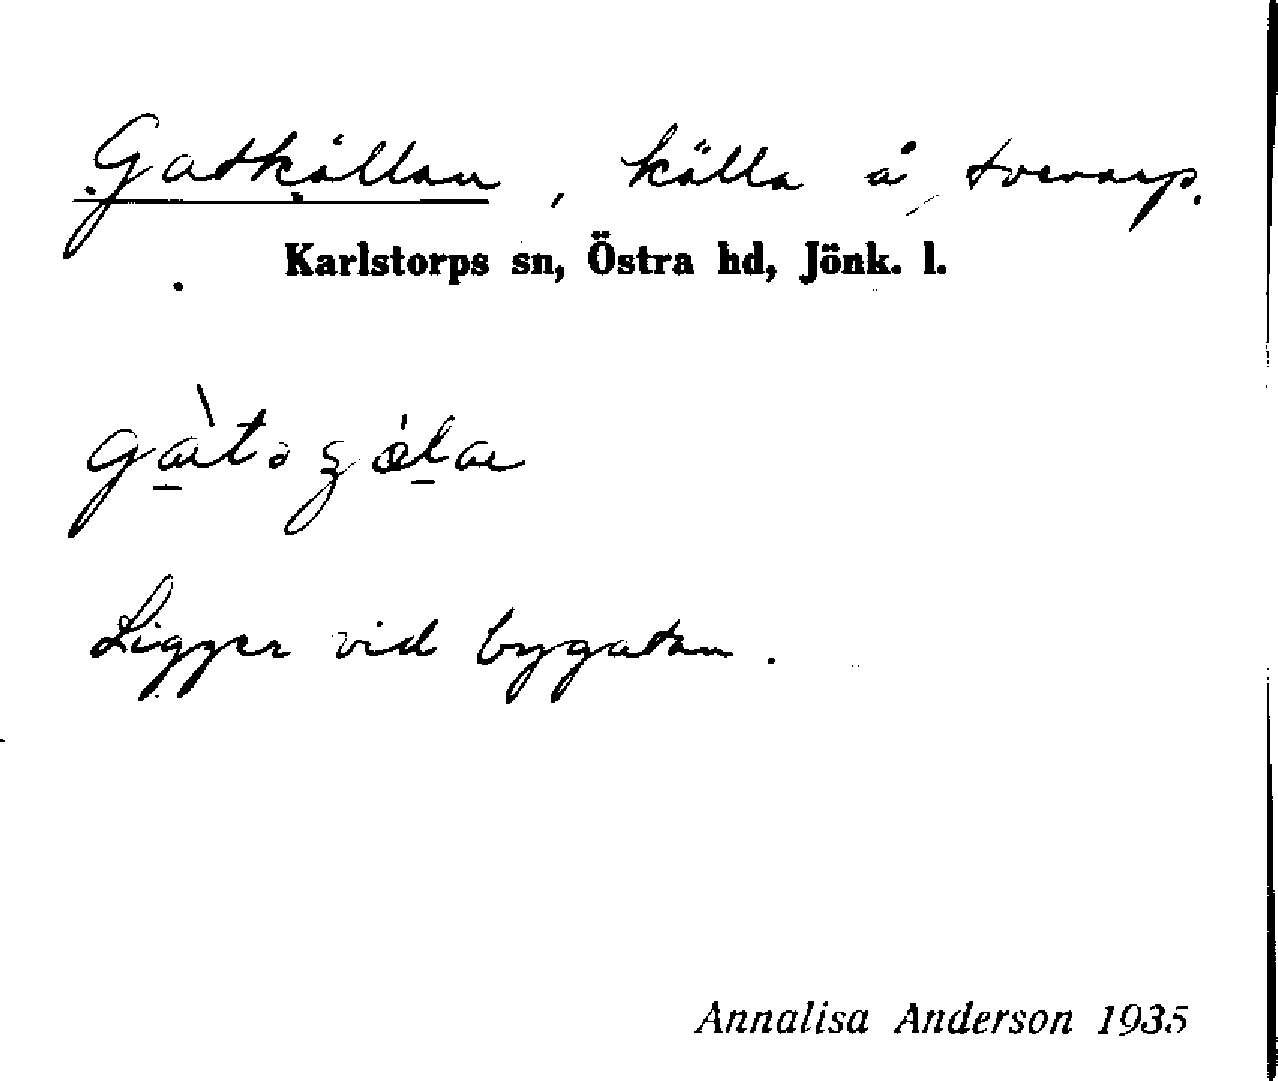 Gatkällan, källa å Tvenarp.
Karlstorps sn, Östra hd, Jönk. l.
Ligger vid bygatan.
Annalisa Anderson 1935